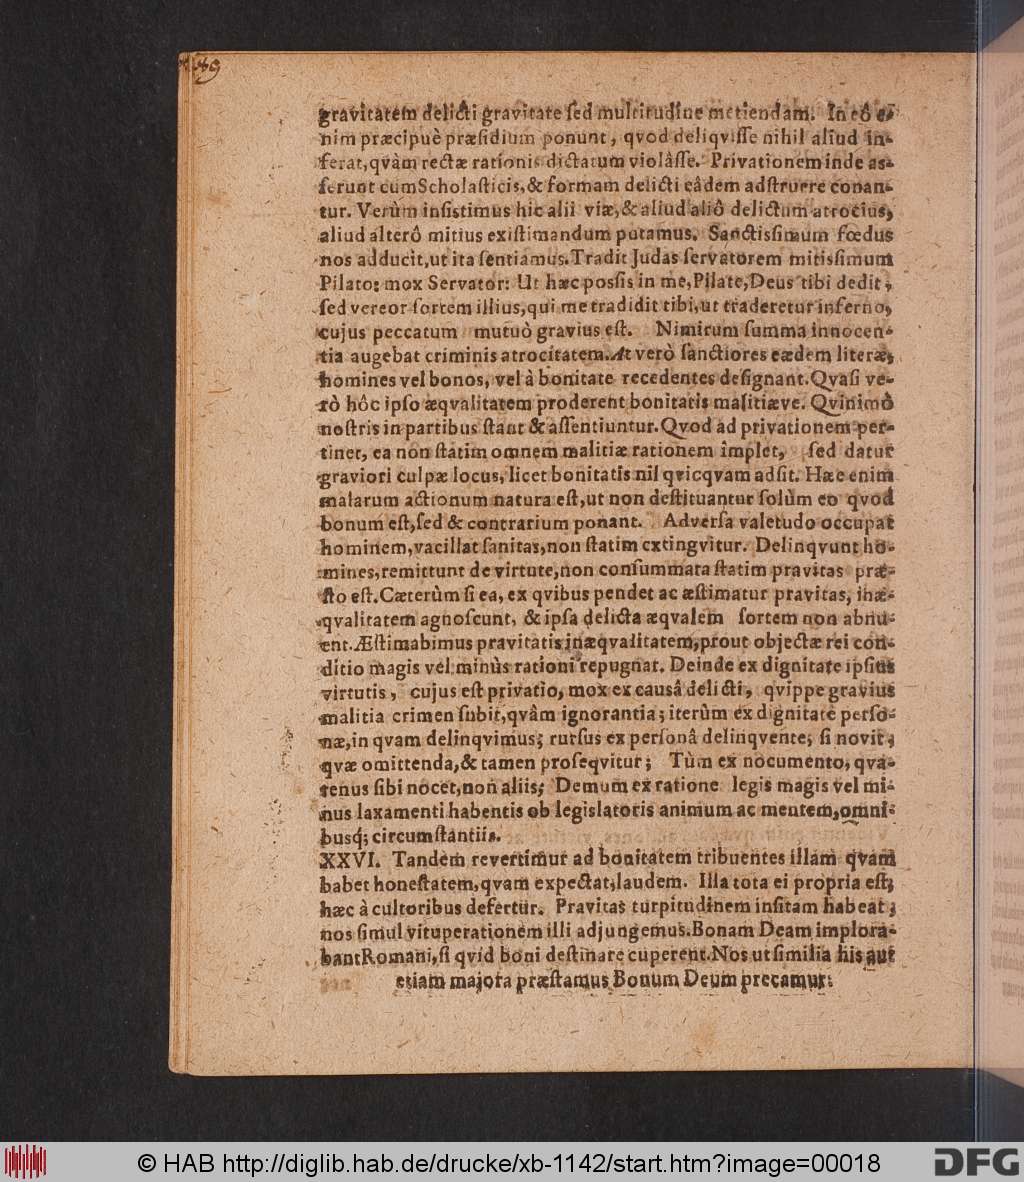 gravitatem delicti gravitate ſed multitudine metiendam. In eô e-
nim præcipuè præſidium ponunt, qvod deliqviſſe nihil aliud in-
ferat, qvàm rectæ rationis dictatum violâſſe. Privationem inde as-
ſerunt cum Scholaſticis, & formam delicti eâdem adſtruere conan-
tur. Verùm inſiſtimus hic alii viæ, & aliud aliô delictum atrocius,
aliud alterô mitius exiſtimandum putamus. Sanctisſimum fœdus
nos adducit, ut ita ſentiamus. Tradit Judas ſervatorem mitisſimum
Pilato: mox Servator: Ut hæc posſis in me, Pilate, Deus tibi dedit;
ſed vereor ſortem illius, qui me tradidit tibi, ut traderetur inferno,
cujus peccatum mutuò gravius eſt. Nimirum ſumma innocen-
tia augebat criminis atrocitatem. At verò ſanctiores eædem literæ,
homines vel bonos, vel à bonitate recedentes deſignant. Qvaſi ve-
rò hôc ipſo æqvalitatem proderent bonitatis malitiæve. Qvinimô
noſtris in partibus ſtant & aſſentiuntur. Qvod ad privationem per-
tinet, ea non ſtatim omnem malitiæ rationem implet, ſed datur
graviori culpæ locus, licet bonitatis nil qvicqvam adſit. Hæc enim
malarum actionum natura eſt, ut non deſtituantur ſolùm eo qvod
bonum eſt, ſed & contrarium ponant. Adverſa valetudo occupat
hominem, vacillat ſanitas, non ſtatim extingvitur. Delinqvunt ho-
mines, remittunt de virtute, non conſummata ſtatim pravitas præ-
ſto eſt. Cæterùm ſi ea, ex qvibus pendet ac æſtimatur pravitas, inæ-
qvalitatem agnoſcunt, & ipſa delicta æqvalem ſortem non abnu-
ent. Æſtimabimus pravitatis inæqvalitatem, prout objectæ rei con-
ditio magis vel minùs rationi repugnat. Deinde ex dignitate ipſius
virtutis, cujus eſt privatio, mox ex causâ delicti, qvippe gravius
malitia crimen ſubit, qvâm ignorantia; iterùm ex dignitate perſo-
næ, in qvam delinqvimus; rurſus ex perſonâ delinqvente, ſi novit,
qvæ omittenda, & tamen proſeqvitur; Tùm ex nocumento, qva-
tenus ſibi nocet, non aliis; Demum ex ratione legis magis vel mi-
nus laxamenti habentis ob legislatoris animum ac mentem, omni-
busq; circumſtantiis.
XXVI. Tandem revertimur ad bonitatem tribuentes illam qvam
habet honeſtatem, qvam expectat, laudem. Illa tota ei propria eſt;
hæc à cultoribus defertur. Pravitas turpitudinem inſitam habeat,
nos ſimul vituperationem illi adjungemus. Bonam Deam implora-
bant Romani, ſi qvid boni deſtinare cuperent. Nos ut ſimilia his aut
etiam majora præſtamus Bonum Deum precamur.
© HAB http://diglib.hab.de/drucke/xb-1142/start.htm?image=00018
DFG